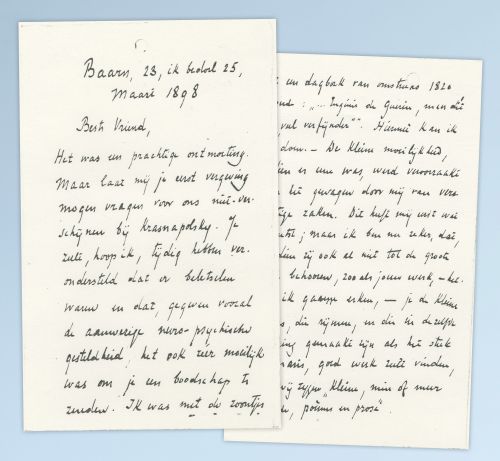 Baarn, 23, ik bedoel 25,
Maart 1898
Beste Vriend,
Het was een prachtige ontmoeting.
Maar laat mij je eerst vergeving
mogen vragen voor ons niet-ver-
schijnen bij Krasnapolsky. Je
zult, hoop ik, tijdig hebben ver-
ondersteld dat er beletselen
waren en dat, gegeven vooral
de aanwezige nevro-psychische
gesteldheid, het ook zeer moeilijk
was om je een boodschap te
zenden. Ik was met de zoontjes
een dagboek van omstreeks 1820
de Guérin, men dit
veel verfijnder". Hiermeê kan ik
doen. — De kleine moeilijkheid,
er eene was, werd veroorzaakt
het gewagen door mij van vers
zaken. Die heeft mij eerst wat
maar ik ben nu zeker, dat,
zij ook al niet tot de groote
behooren, zooals jouw werk, — het-
ik gaarne erken, — je de kleine
die rijmen, en die in dezelfde
gemaakt zijn als het stuk
goed werk zult vinden,
wij zeggen "kleine, min of meer
poëems en prosa".